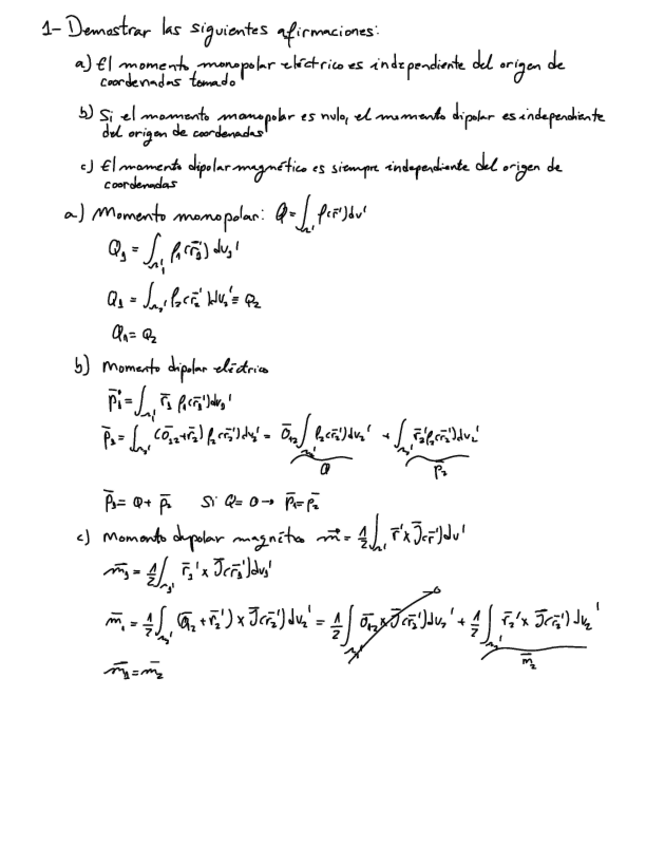 1- Demostrar las siguientes afirmaciones:
a) El momento monopolar eléctrico es independiente del origen de
coordenadas tomado
b) Si el momento monopolar es nulo, el momento dipolar es independiente
del origen de coordenadas
c) El momento dipolar magnético es siempre independiente del origen de
coordenadas
a) Momento monopolar: Q = ∫_Ω' ρ(r̄')dv'
Q₁ = ∫_Ω₁' ρ₁(r̄₁') dv₁'
Q₁ = ∫_Ω₂' ρ₂(r̄₂')dv₂' = Q₂
Q₁ = Q₂
b) Momento dipolar eléctrico
p̄₁ = ∫_Ω₁' r̄₁ ρ₁(r̄₁')dv₁'
p̄₁ = ∫_Ω₂' (Ō₁₂+r̄₂') ρ₂(r̄₂')dv₂' = Ō₁₂ ∫_Ω₂' ρ₂(r̄₂')dv₂' + ∫_Ω₂' r̄₂' ρ₂(r̄₂')dv₂'
Q p̄₂
p̄₁ = Q + p̄₂ Si Q = 0 → p̄₁ = p̄₂
c) Momento dipolar magnético m̄ = 1/2 ∫_Ω' r̄' x J̄(r̄')dv'
m̄₁ = 1/2 ∫_Ω₁' r̄₁' x J̄(r̄₁')dv₁'
m̄₁ = 1/2 ∫_Ω₂' (Ō₁₂ + r̄₂') x J̄(r̄₂')dv₂' = 1/2 ∫_Ω₂' Ō₁₂ x J̄(r̄₂')dv₂' → 0 + 1/2 ∫_Ω₂' r̄₂' x J̄(r̄₂') dv₂'
m̄₂
m̄₁ = m̄₂